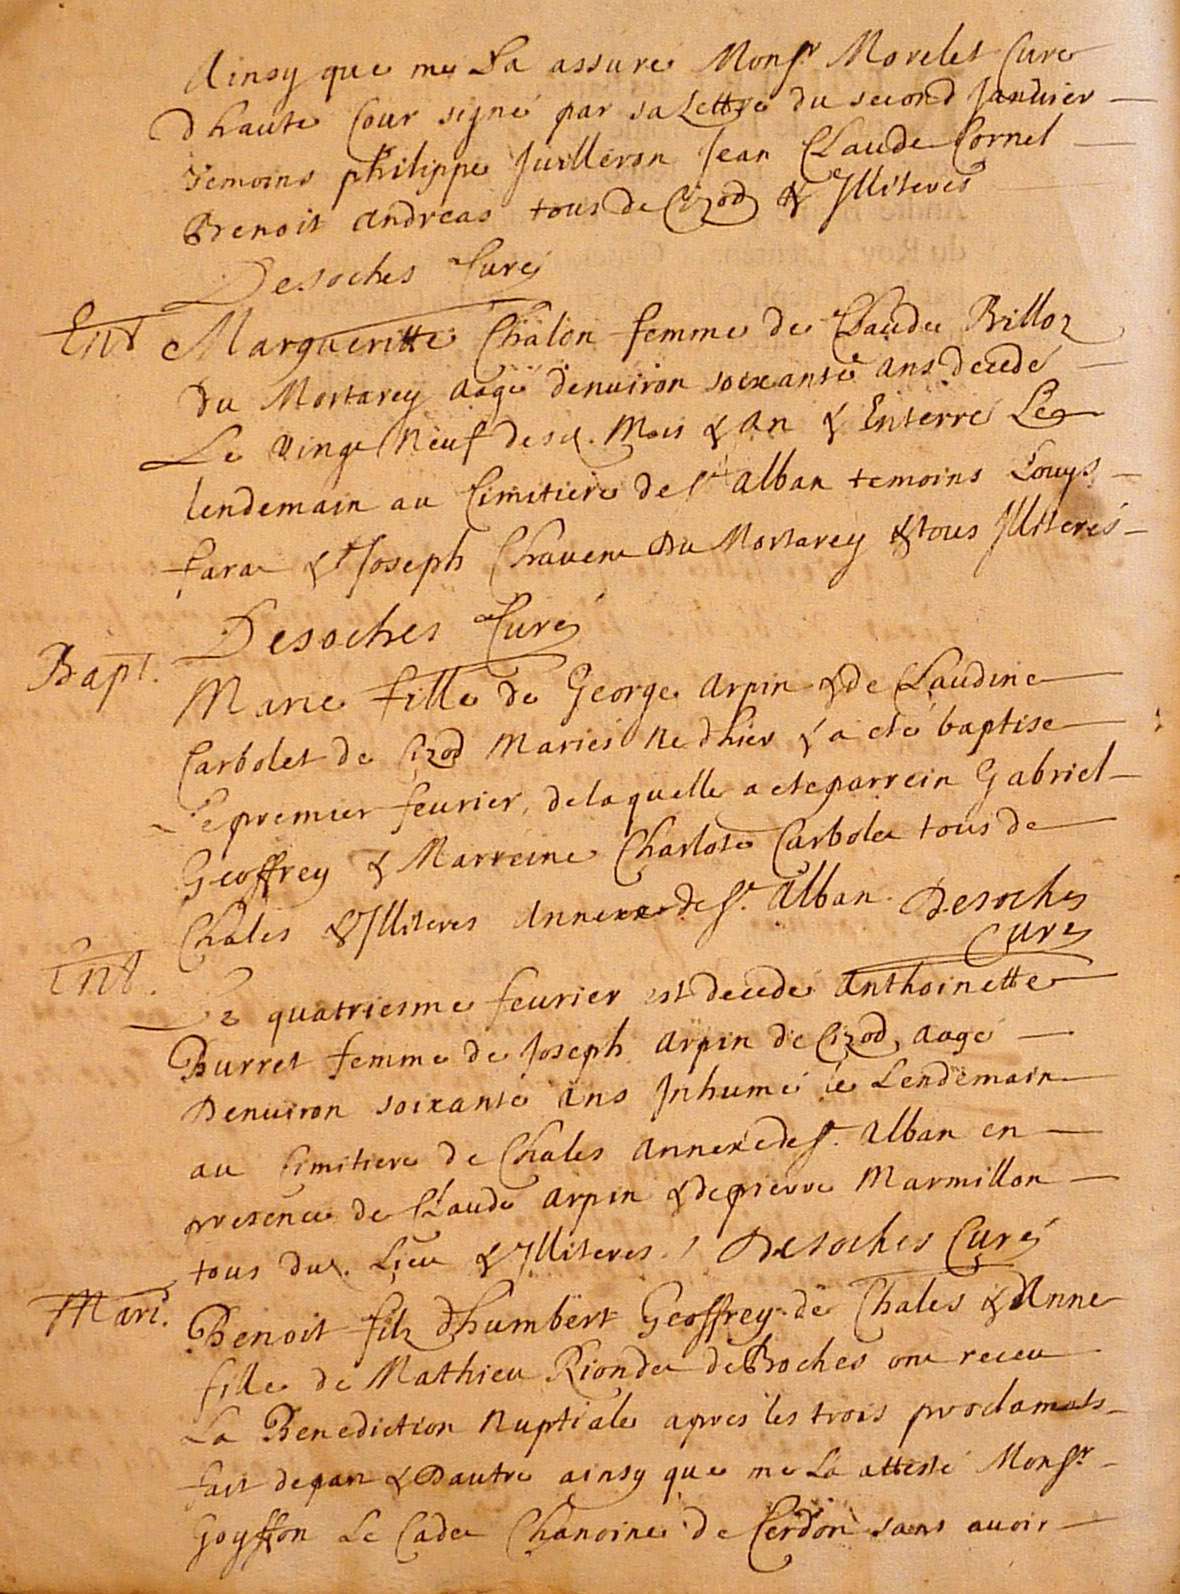 Ainsy que me La assure Monsr Morelet Cure
dhaute Cour signé par sa Lettre du second Janvier
Temoins philippe Juilleron Jean Claude Cornet
Benoit andreas tous de Cizod & Jlliteres
Desoches Curé
Ent Margueritte Chalon femme de Claude Billoz
du Mortarey aagé denuiron soixante ans decedé
Le vingt Neuf desd. Mois & an & Enterré Le
lendemain au Cimitiere de st alban temoins Louys
fara & Joseph Chauen du Mortarey & tous Jlliterés
Desoches Curé
Bapt.
Marie fille de George arpin & de Claudine
Carbolet de Cizod Mariés Ne dhier & a eté baptise
Le premier feurier, de laquelle a ete parrein Gabriel
Geoffrey & Marreine Charlote Carbolet tous de
Chales & Jlliteres annexe de st. alban. Desoches
Curé
Ent.
Le quatriesme feurier est decedé anthoinette
Burret femme de Joseph arpin de Cizod, aagé
denuiron soixante ans Jnhumé le Lendemain
au Cimitiere de Chales annexe de st. alban en
presence de Claude arpin & de pierre Marmillon
tous dud. Lieu & Jlliteres. / Desoches Curé
Mari.
Benoit filz dhumbert Geoffrey de Chales & Anne
fille de Mathieu Rionde de Boches ont receu
La Benediction Nuptiale apres les trois proclamats
fait de part & Dautre ainsy que me La attesté Monsr
Goyffon Le Cadet Chanoine de Cerdon sans auoir